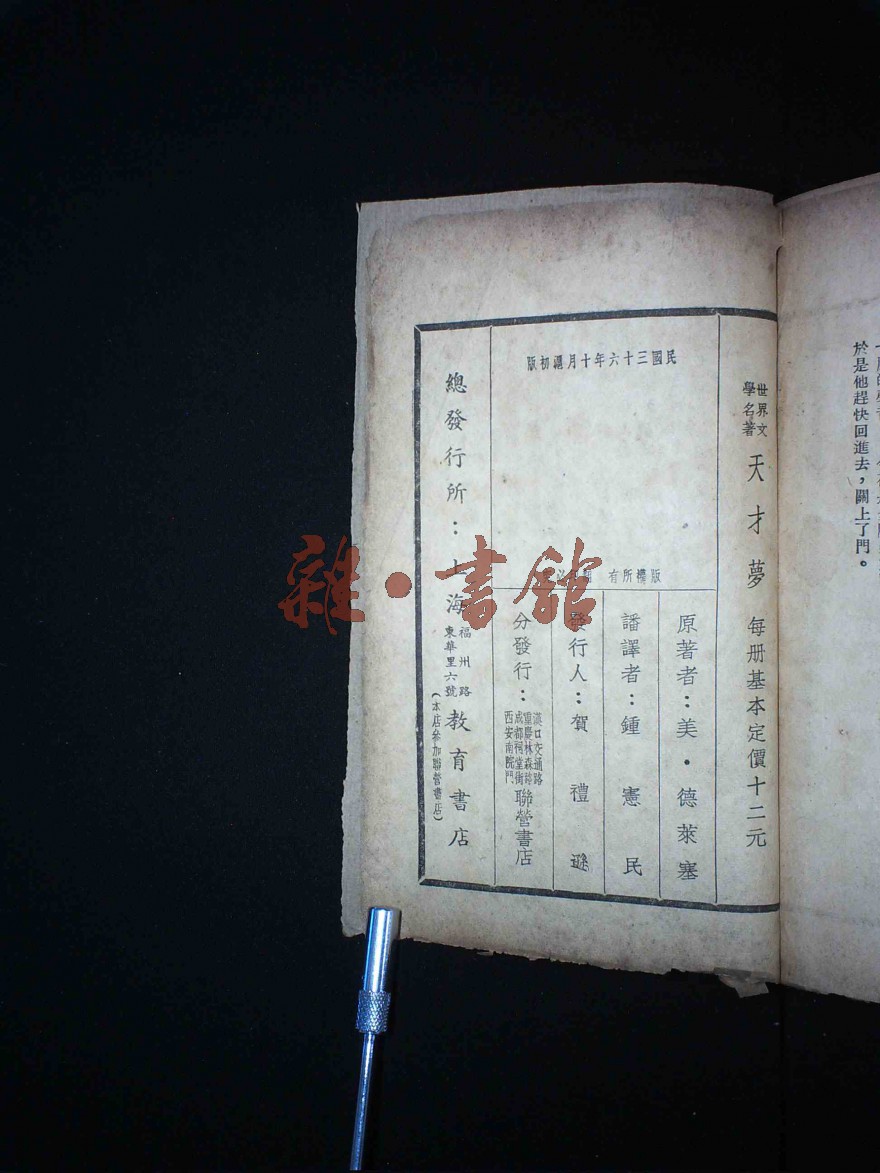 於是他趕快回進去，關上了門。
世界文學名著
天才夢 每册基本定價十二元
民國三十六年十月滬初版
版權所有
原著者：美·德萊塞
譯者：鍾憲民
發行人：賀禮遜
分發行：
漢口交通路
重慶林森路
成都祠堂街
西安南院門
聯營書店
總發行所：上海
福州路
東華里六號
教育書店
（本店參加聯營書店）
雜·書館